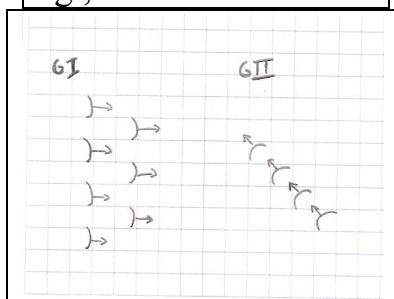 GI GII